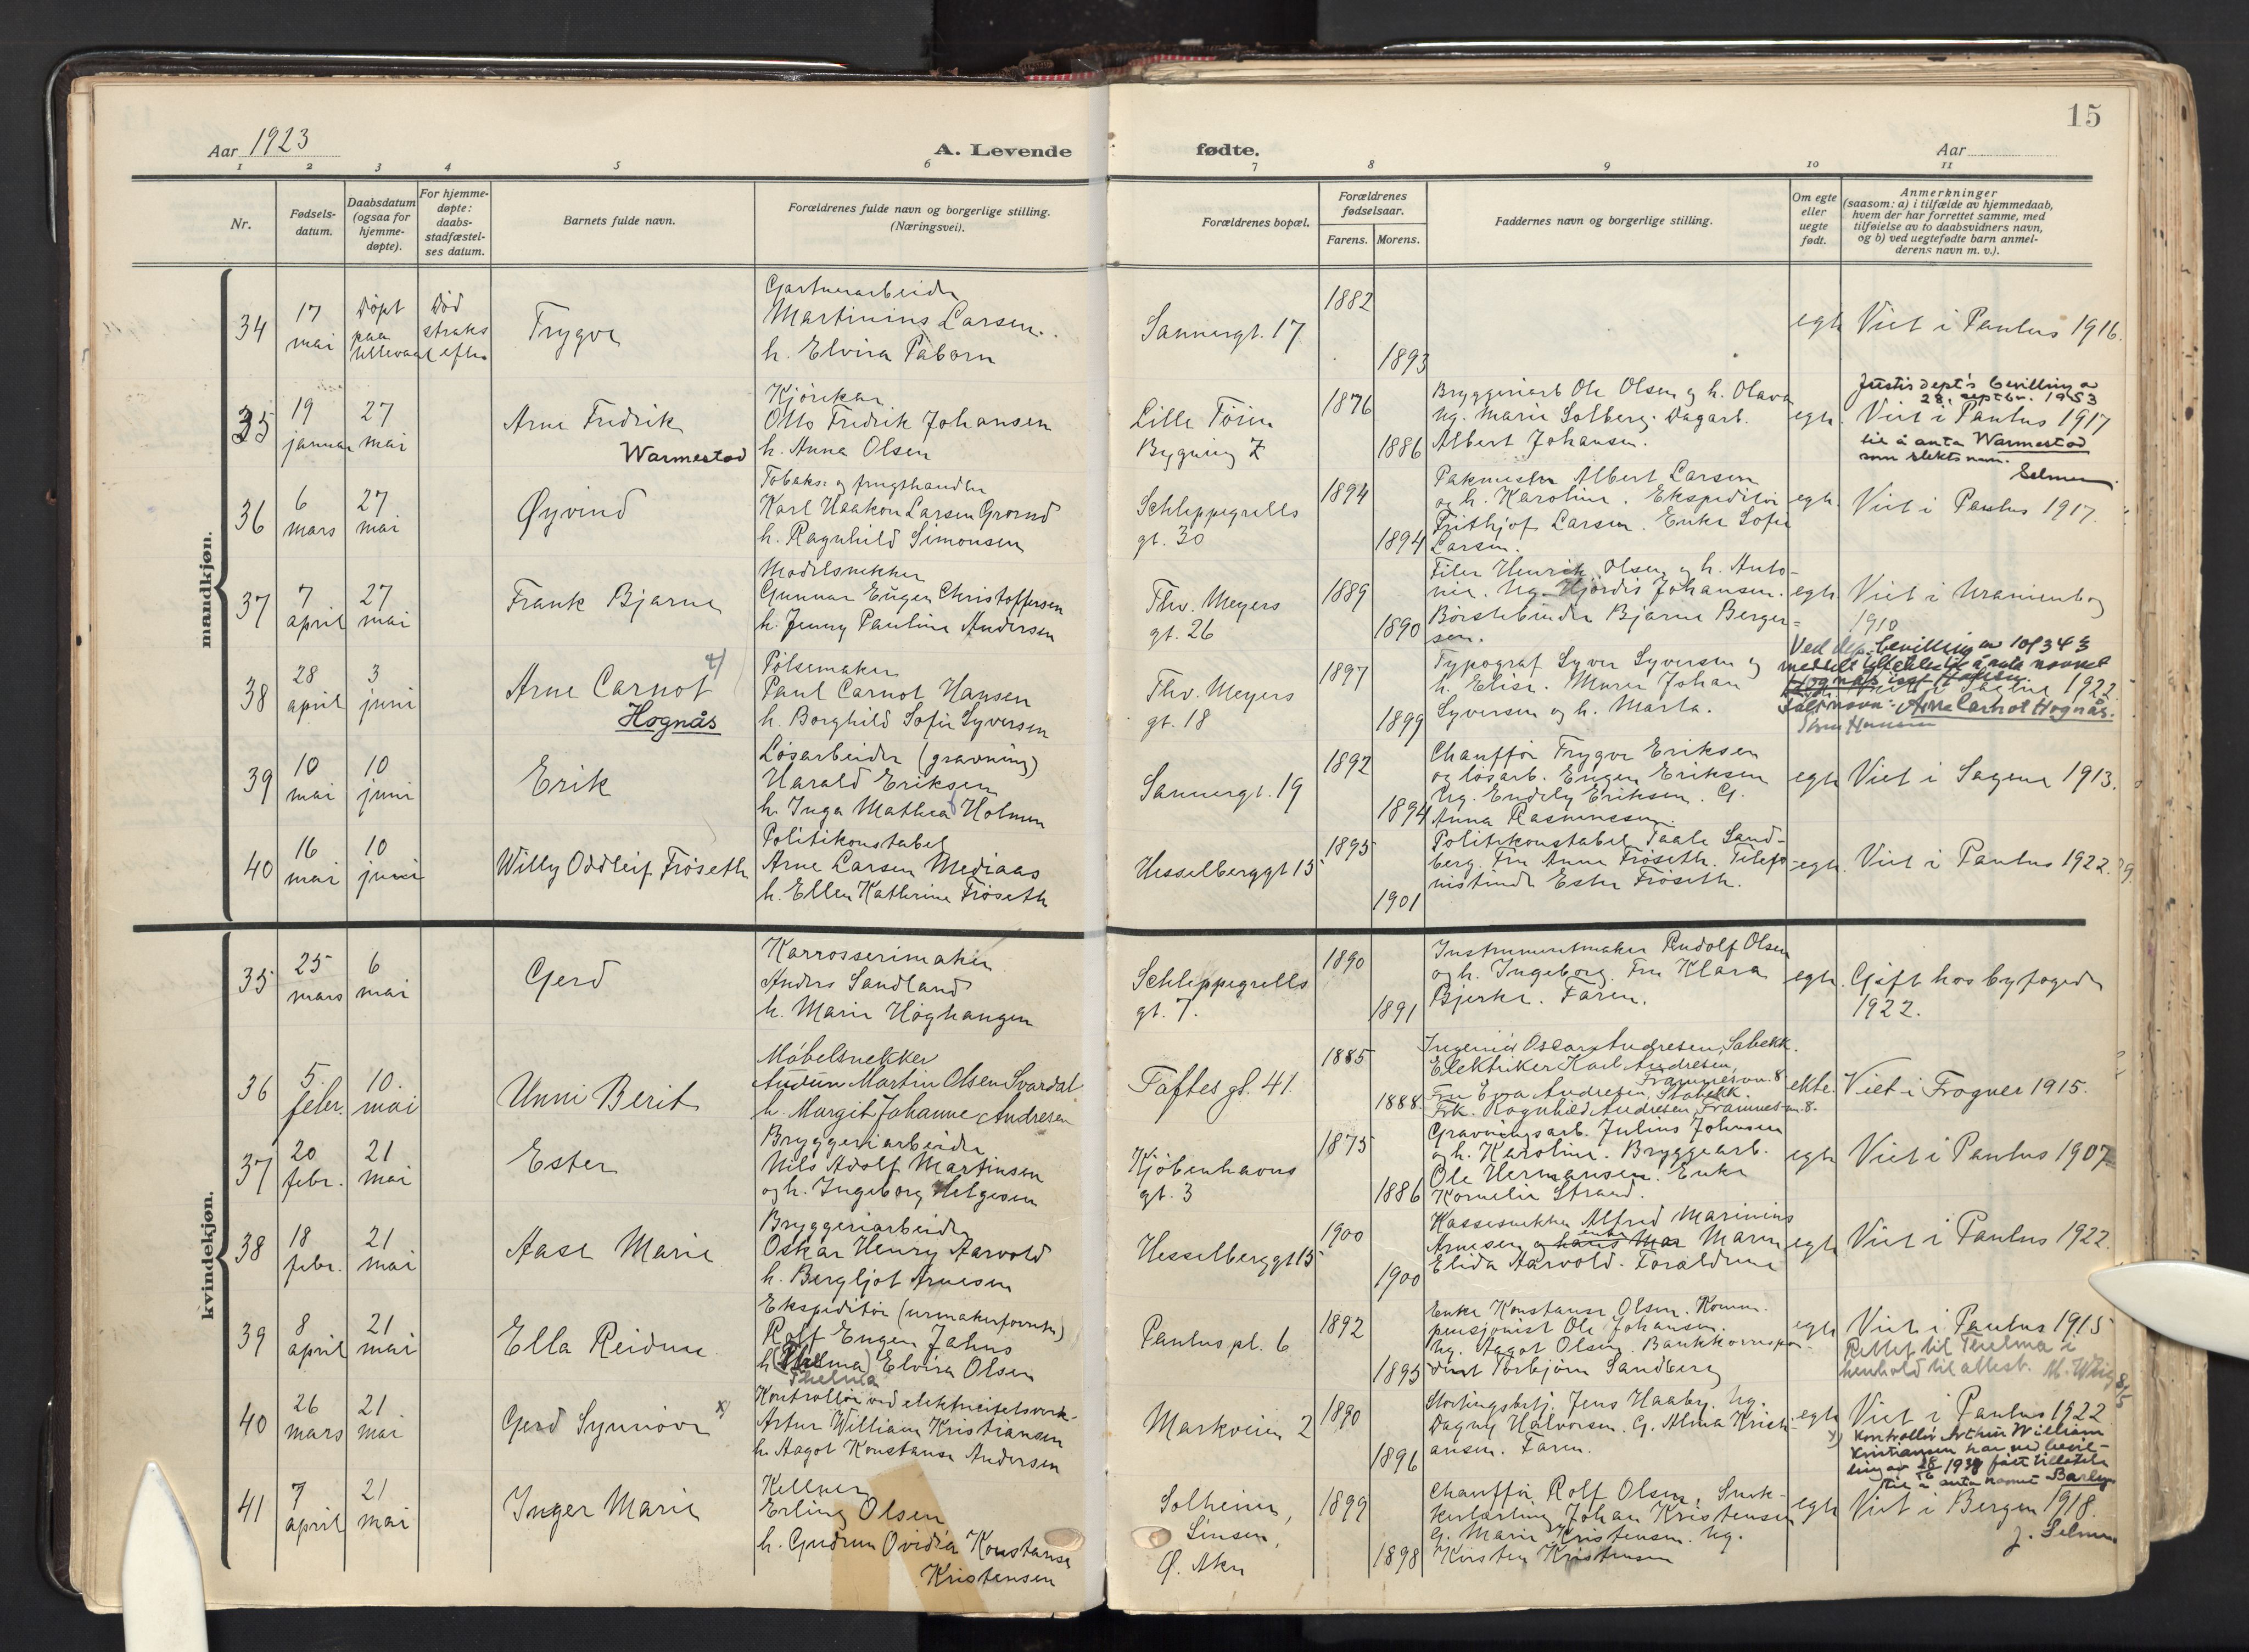 15
Aar 1923
A. Levende
fødte.
Aar
1 2 3 4 5 6 7 8 9 10 11
Nr.
Fødsels-
datum.
Daabsdatum
(ogsaa for
hjemme-
døpte).
For hjemme-
døpte:
daabs-
stadfæstel-
ses datum.
Barnets fulde navn.
Forældrenes fulde navn og borgerlige stilling.
(Næringsvei).
Forældrenes bopæl.
Forældrenes
fødselsaar.
Farens. Morens.
Faddernes navn og borgerlige stilling.
Om egte
eller
uegte
født.
Anmerkninger
(saasom: a) i tilfælde av hjemmedaab,
hvem der har forrettet samme, med
tilføielse av to daabsvidners navn,
og b) ved uegtefødte barn anmel-
derens navn m. v.).
mandkjøn.
34
17
mai
Døpt
paa
Ullevaal
Død
straks
efter
Trygve
Gartnerarbeider
Martinius Larsen.
h. Elvira Paborn
Sannergt. 17
1882
1893
egte
Viet i Paulus 1916.
35
19
januar
27
mai
Arne Fredrik
Warmestad
Kjørekar
Otto Fredrik Johansen
h. Anna Olsen
Lille Tøien
Bygning Z
1876
1886
Bryggeriarb Ole Olsen og h. Olava
Ug. Marie Solberg. Dagarb.
Albert Johansen.
egte.
Justisdept's bevilling av
28. septbr. 1953
Viet i Paulus 1917
til å anta Warmestad
som slektsnavn.
Selmer
36
6
mars
27
mai
Øyvind
Tobaks- og frugthandler
Karl Haakon Larsen Grorud
h. Ragnhild Simonsen
Schleppegrells
gt. 30
1894
1894
Pakmester Albert Larsen
og h. Karoline. Ekspeditør
Frithjof Larsen. Enke Sofie
Larsen.
egte.
Viet i Paulus 1917.
37
7
april
27
mai
Frank Bjarne
Modelsnekker
Gunnar Eugen Christoffersen
h. Jenny Pauline Andersen
Thv. Meyers
gt. 26
1889
1890
Filer Henrik Olsen og h. Anto-
nie. Ug. Hjørdis Johansen.
Børstebinder Bjarne Berger-
sen.
egte
Viet i Uranienborg
1910
38
28
april
3
juni
Arne Carnot
Hognås
Pølsemaker
Paul Carnot Hansen
h. Borghild Sofie Syversen
Thv. Meyers
gt. 18
1897
1899
Typograf Syver Syversen og
h. Elise. Murer Johan
Syversen og h. Marta.
Ved dep. bevilling av
Viet i Sagene 1922.
Arne Carnot Hognås.
39
10
mai
10
juni
Erik
Løsarbeider (gravning)
Harald Eriksen
h. Inga Mathea Holmen
Sannergt. 19
1892
1894
Chauffør Trygve Eriksen
og løsarb. Eugen Eriksen
Ug. Endely Eriksen. G.
Anna Rasmussen.
egte
Viet i Sagene 1913.
40
16
mai
10
juni
Willy Oddleif Frøseth
Politikonstabel
Arne Larsen Mediaas
h. Ellen Kathrine Frøseth
Hesselberggt 15
1895
1901
Politikonstabel Paale Sand-
berg. Fru Anna Frøseth. Telefo-
nistinde Ester Frøseth.
egte.
Viet i Paulus 1922.
kvindekjøn.
35
25
mars
6
mai
Gerd
Karrosserimaker
Anders Sandland
h. Marie Høghaugen
Schleppegrells
gt. 7.
1890
1891
Instrumentmaker Rudolf Olsen
og h. Ingeborg. Fru Klara
Bjerke. Faren.
egte.
Gift hos byfogden
1922.
36
5.
febr.
10.
mai
Unni Berit
Møbelsnekker
Audun Martin Olsen Svardal
h. Margit Johanne Andresen
Toftes gt. 41.
1885
1888
Ingeniør Oscar Andresen, Stabekk.
Elektriker Karl Andresen,
Framnesvn. 8
Fru Ema Andresen, Stabekk.
Frk. Ragnhild Andresen, Framnesvn. 8.
ekte.
Viet i Frogner 1915.
37
20
febr.
21
mai
Ester
Bryggeriarbeider
Nils Adolf Martinsen
og h. Ingeborg Helgesen
Kjøbenhavns
gt. 3
1875
1886
Gravningsarb. Julius Johnsen
og h. Karoline. Bryggearb.
Ole Hermansen. Enke
Kornelie Strand.
egte
Viet i Paulus 1907
38
18
febr.
21
mai
Aase Marie
Bryggeriarbeider
Oskar Henry Aarvold
h. Bergljot Arnesen
Hesselberggt 15
1900
1900
Kassesnekker Alfred Marinius
Arnesen og hans Mar enke Maren
Elida Aarvold. Forældrene
egte
Viet i Paulus 1922.
39
8
april
21
mai
Ella Reidun
Ekspeditør (urmakerforretn.)
Rolf Eugen Jahns
h. (Thelma) Elvira Olsen
Thelma
Paulus pl. 6
1892
1895
Enke Konstanse Olsen. Komm.
pensjonist Ole Johansen.
Ug. Aagot Olsen. Bankkorrespon-
dent Torbjørn Sandberg
egte
Viet i Paulus 1915
Rettet til Thelma i
henhold til attest.
40
26
mars
21
mai
Gerd Synnøve x)
Kontrollør ved elektricitetsverk.
Artur William Kristiansen
h. Aagot Konstanse Andersen
Markveien 2
1890
1896
Stortingsbetj. Jens Haaby. Ug.
Dagny Halvorsen. G. Alma Kristi-
ansen. Faren.
egte
Viet i Paulus 1922
x) Kontrollør Arthur William
Kristiansen har ved bevil-
ling av 1938 fått tillatelse
til å anta navnet Barlys
41
7
april
21
mai
Inger Marie
Kellner
Erling Olsen
h. Gudrun Ovidia Konstanse
Kristensen
Solheim,
Sinsen,
Ø. Aker
1899
1898
Chauffør Rolf Olsen, Snek-
kerlærling Johan Kristensen
G. Marie Kristensen. Ug.
Kirsten Kristensen
egte
Viet i Bergen 1918.
J. Selmer